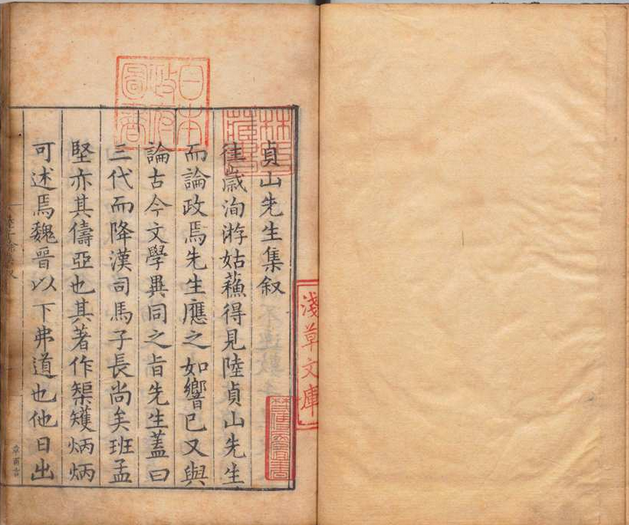 貞山先生集叙
往歳洵游姑蘓得見陸貞山先生
而論政焉先生應之如響已又與
論古今文學異同之旨先生蓋曰
三代而降漢司馬子長尚矣班孟
堅亦其儔亞也其著作榘矱炳炳
可述焉魏晉以下弗道也他日出
日本
政府
圖書
林氏
藏書
淺草文庫